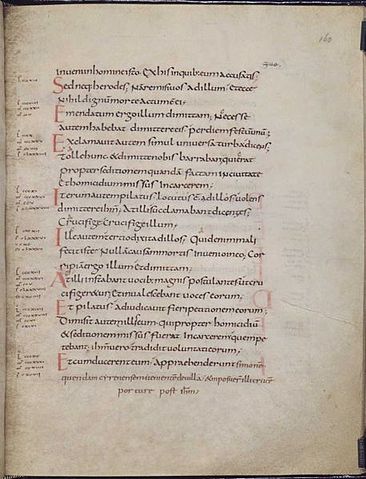 160
invenio in homine isto. Ex his in quib; eum accusatis
Sed neq; herodes, Nam remisi vos ad illum et ecce
Nihil dignum morte actum e ei
Emendatum ergo illum dimittam, Necesse
autem habebat dimittere eis per diem festū unū;
Exclamavit autem simul universa turba dicens,
Tolle hunc & dimitte nobis barraban, qui erat
propter seditionem quandā factam in civitate
& homicidium missus In carcerem,
Iterum autem pilatus locutus ē ad illos volens
dimittere ihm, At illi succlamabant dicentes,
Crucifige Crucifige illum,
Ille autem tertio dixit ad illos, Quid enim mali
fecit iste, Nullā causam mortis invenio in eo, Cor
ripiā ergo illum et dimittam,
At illi instabant vocib; magnis postulantes ut cru
cifigeretur Et invalescebant voces eorum,
Et pilatus Adiudicavit fieri petitionem eorum,
Dimisit autem illis eum qui propter homicidiū
& seditionem missus fuerat In carcerem quem pe
tebant, ihm vero tradidit voluntati eorum,
Et cum ducerent eum, Apprehenderunt simonē
quendam cyrenensem venientē de villa, & imposuer illi crucē
portare post ihm;